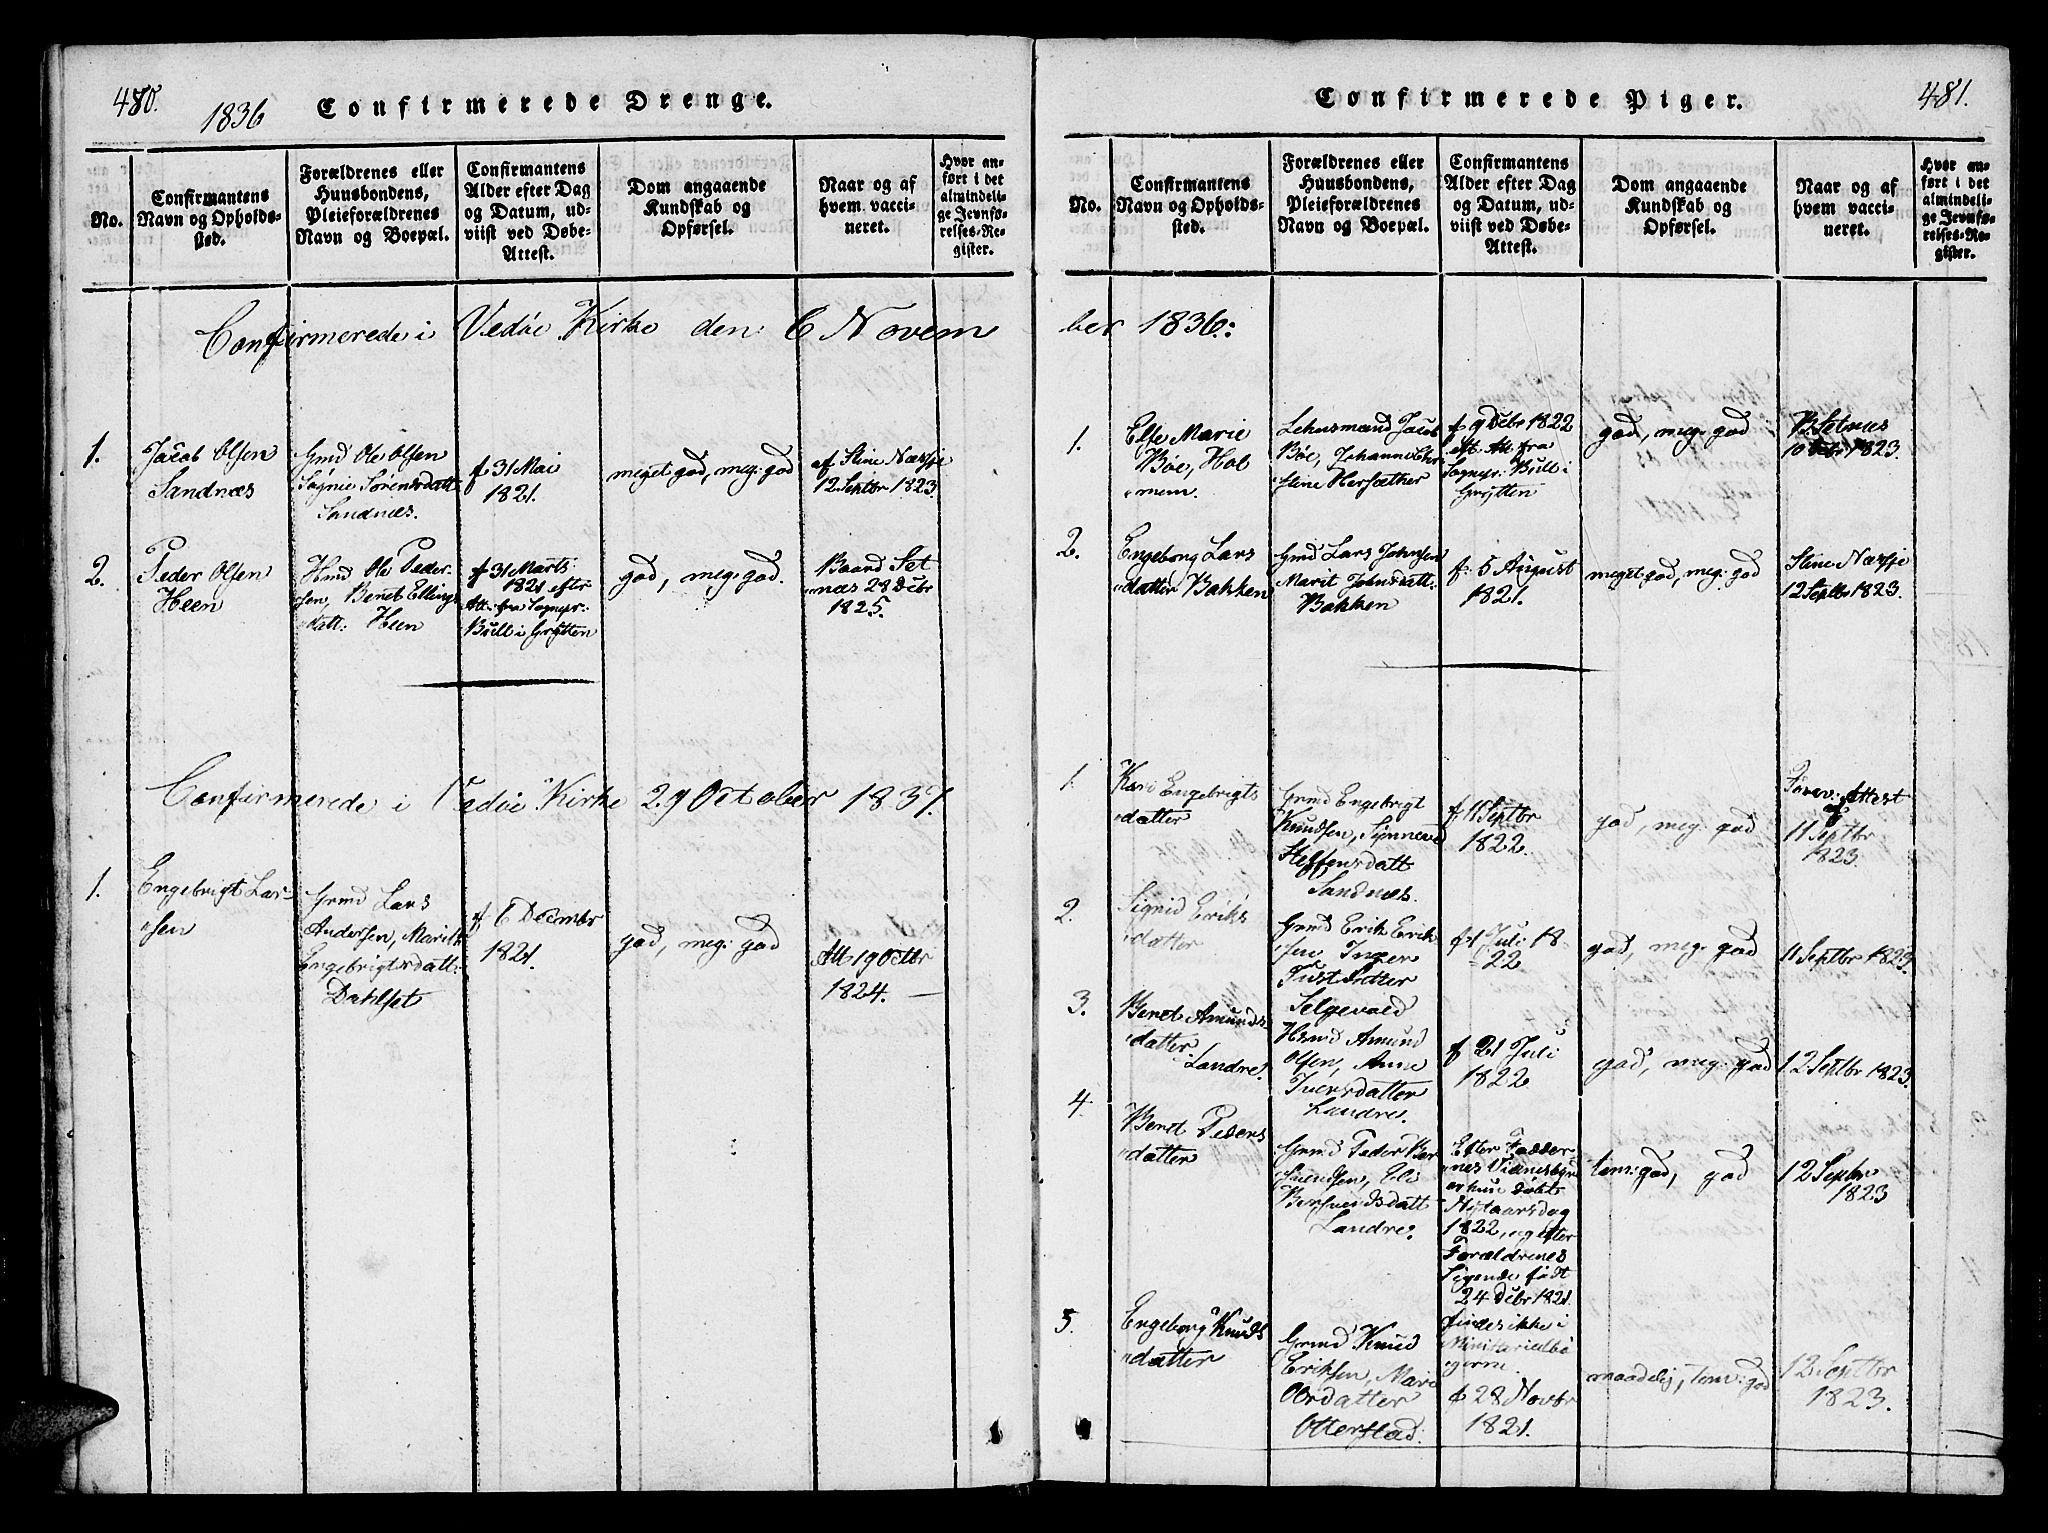 480.
1836
Confirmerede Drenge.
No.
Confirmantens
Navn og Opholds-
sted.
Forældrenes eller
Huusbondens,
Pleieforældrenes
Navn og Boepæl.
Confirmantens
Alder efter Dag
og Datum, ud-
viist ved Døbe-
Attest.
Dom angaaende
Kundskab og
Opførsel.
Naar og af
hvem vacci-
neret.
Hvor an-
ført i det
almindeli-
ge Jevnfø-
relses-Re-
gister.
Confirmerede i Vedøe Kirke den 6 Novem
1.
Jacob Olsen
Sandnæs
Gmd Ole Olsen
Søgnie Sørensdatt
Sandnæs.
f 31 Mai
1821.
meget god, meg: god
af Stine Næssje
12 Septbr 1823
2.
Peder Olsen
Heen
Hmd Ole Peder-
sen, Beret Ellings
datt: Heen
f 31 Marts
1821 efter
Att: fra Sognpr:
Bull i Grytten
god, meg: god.
Baard Set
næs 28 Debr
1825.
Confirmerede i Vedøe Kirke 29 October 1837.
1.
Engebrigt Lar-
sen
Grmd Lars
Andersen, Marith
Engebrigtsdatt:
Dahlset
f 6 Decembr
1821.
god, meg: god
Att 19 Octbr
1824.
481.
Confirmerede Piger.
No.
Confirmantens
Navn og Opholds-
sted.
Forældrenes eller
Huusbondens,
Pleieforældrenes
Navn og Boepæl.
Confirmantens
Alder efter Dag
og Datum, ud-
viist ved Døbe-
Attest.
Dom angaaende
Kundskab og
Opførsel.
Naar og af
hvem vacci-
neret.
Hvor an-
ført i det
almindeli-
ge Jevnfø-
relses-Re-
gister.
ber 1836:
1.
Else Marie
Bøe, Hol
mem.
Lehnsmand Jacob
Bøe, Johanne Chr
stine Hersæther
f 9 Debr 1822
eft. Att fra
Sognpr: Bull i
Grytten
god, meg: god
B. Setnæs
10 1823.
2.
Engeborg Lars
datter Bakken
Gmd Lars Johnsen
Marit Johnsdatt:
Bakken
f: 5 August
1821.
meget god, meg: god
Stine Næssje
12 Septbr 1823.
1.
Kari Engebrigts
datter
Grmd Engebrigt
Knudsen, Synneved
Steffensdatt
Sandnæs.
f 11 Septbr
1822.
god, meg: god
Attest
11 Septbr
1823.
2.
Signid Eriks
datter
Grmd Erik Erik
sen Inger
Selgevold
f 1 Juli 18
22
god, meg: god
11 Septbr 1823.
3.
Beret Amunds
datter
Landre.
Hsmd Amund
Olsen, Anne
Iversdatter
Landre.
f 21 Juli
1822
god, meg: god
12 Septbr 1823.
4.
Beret Peders
datter
Grmd Peder Ber
Eli
Landre.
Efter Fadder
nes Vidnesbyrd
er hun døbt
Nytaarsdag
1822, og efter
Forældrenes
Sigende født
24 Debr 1821.
findes ikke i
Ministerialbø
gerne.
tem: god, god
12 Septbr
1823
5.
Engeborg Knuds
datter
Grmd Knud
Eriksen, Mari
Ordatter
Otterstad.
f 28 Novbr
1821.
maadelig, tem: god
12 Septbr
1823.